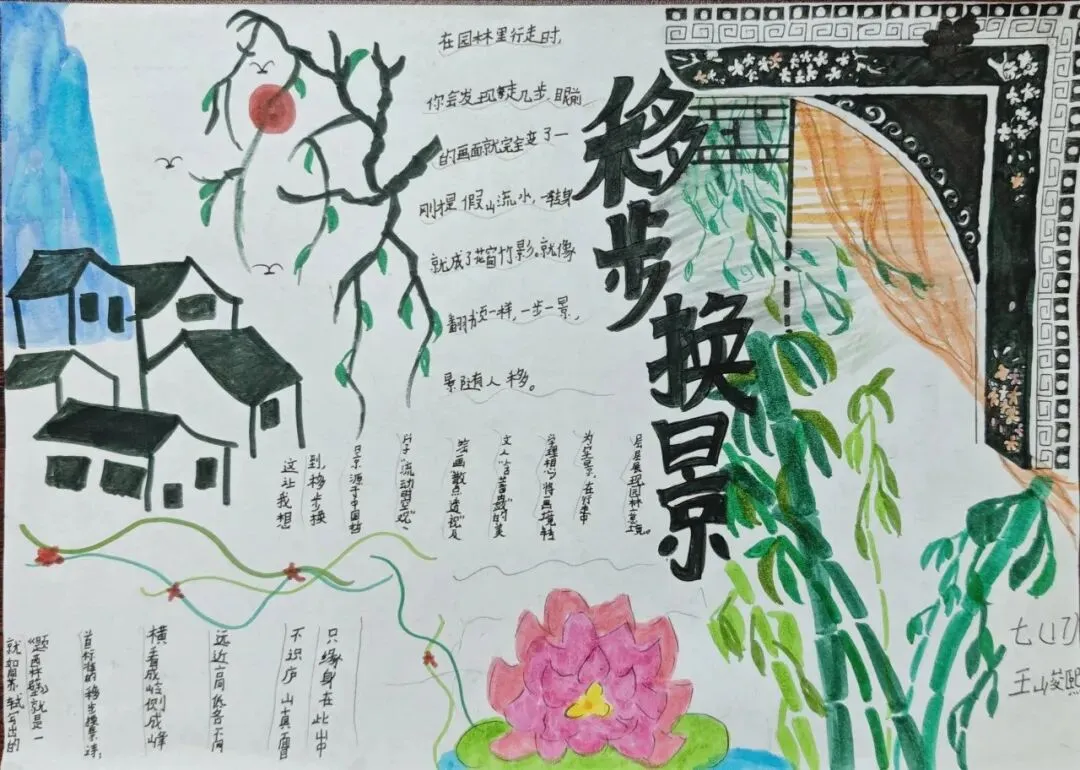 移步换景
在园林里行走时，
你会发现走几步，眼前
的画面就完全变了一
刚假山流水，一转身
就成了花窗竹影。就像
翻书页一样，一步一景，
景随人移。
这让我想
到移步换
景源于中国哲
学“流动时空观”、
绘画“散点透视”及
文人“含蓄”的美
学理想，将画境转
为实景，在行走中
层层展现园林意境。
就如苏轼写出的
《题西林壁》就是一
首标准的移步换景诗：
横看成岭侧成峰
远近高低各不同
不识庐山真面目
只缘身在此山中
七(17)
王峻熙